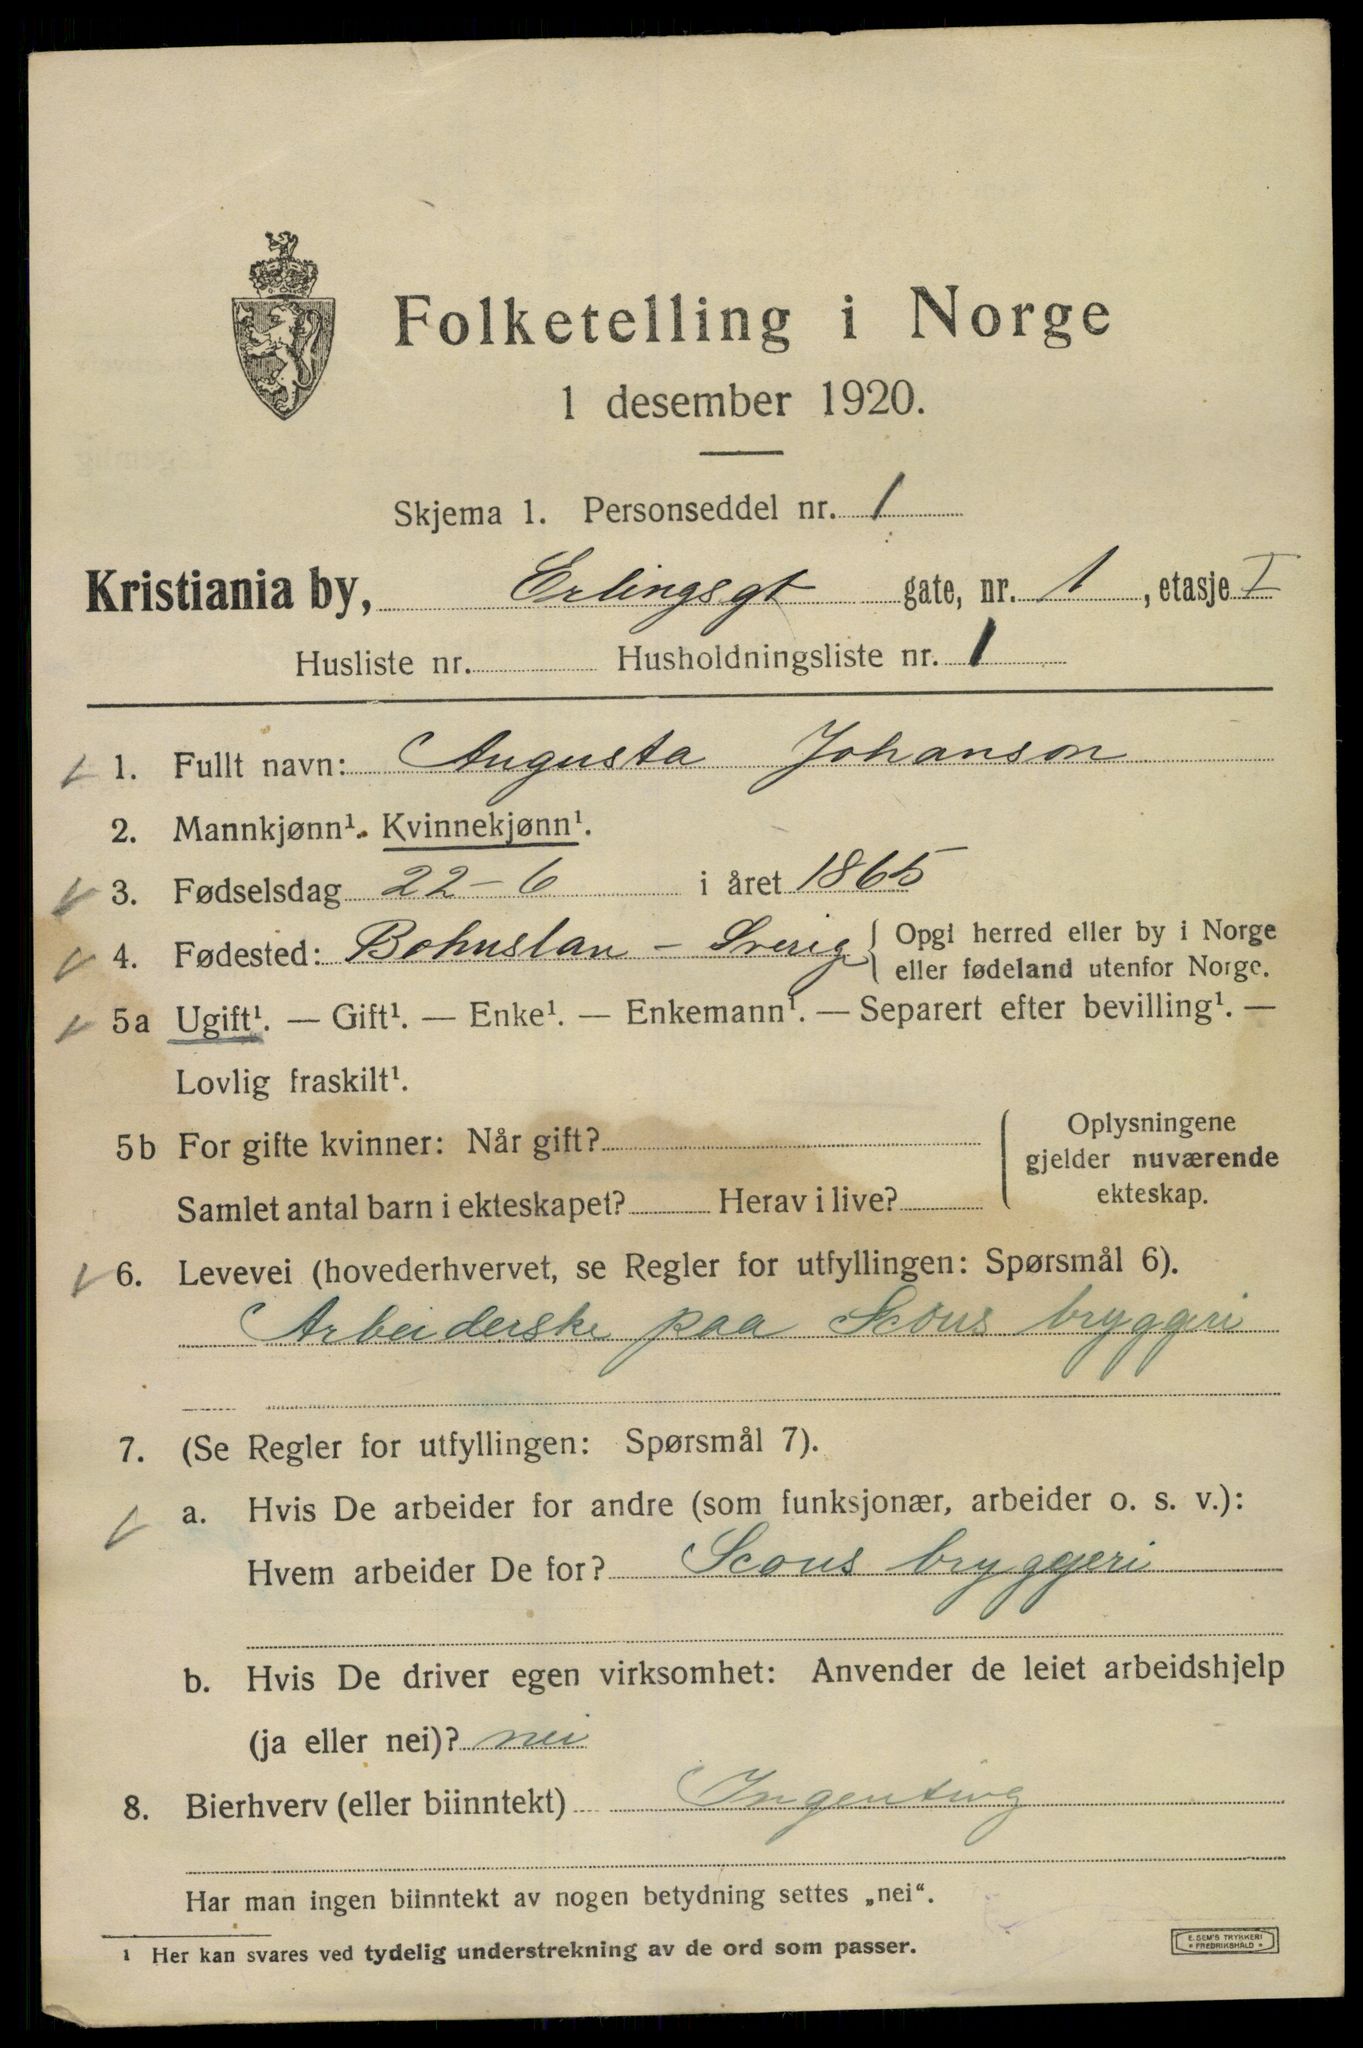 Folketelling i Norge
1 desember 1920.
Skjema 1. Personseddel nr. 1
Kristiania by, Erlingsgt gate, nr. 1, etasje I
Husliste nr. Husholdningsliste nr. 1
1. Fullt navn: Augusta Johanson
2. Mannkjønn¹. Kvinnekjønn¹.
3. Fødselsdag 22-6 i året 1865
4. Fødested: Bohuslan - Sverig { Opgi herred eller by i Norge
eller fødeland utenfor Norge.
5a Ugift¹. — Gift¹. — Enke¹. — Enkemann¹. — Separert efter bevilling¹. —
Lovlig fraskilt¹.
5b For gifte kvinner: Når gift?
Samlet antal barn i ekteskapet? Herav i live?
Oplysningene
gjelder nuværende
ekteskap.
6. Levevei (hovederhvervet, se Regler for utfyllingen: Spørsmål 6).
Arbeiderske paa Scous bryggeri
7. (Se Regler for utfyllingen: Spørsmål 7).
a. Hvis De arbeider for andre (som funksjonær, arbeider o. s. v.):
Hvem arbeider De for? Scous bryggeri
b. Hvis De driver egen virksomhet: Anvender de leiet arbeidshjelp
(ja eller nei)? nei
8. Bierhverv (eller biinntekt) Ingenting
Har man ingen biinntekt av nogen betydning settes „nei“.
¹ Her kan svares ved tydelig understrekning av de ord som passer.
E. SEM'S TRYKKERI
• FREDRIKSHALD •